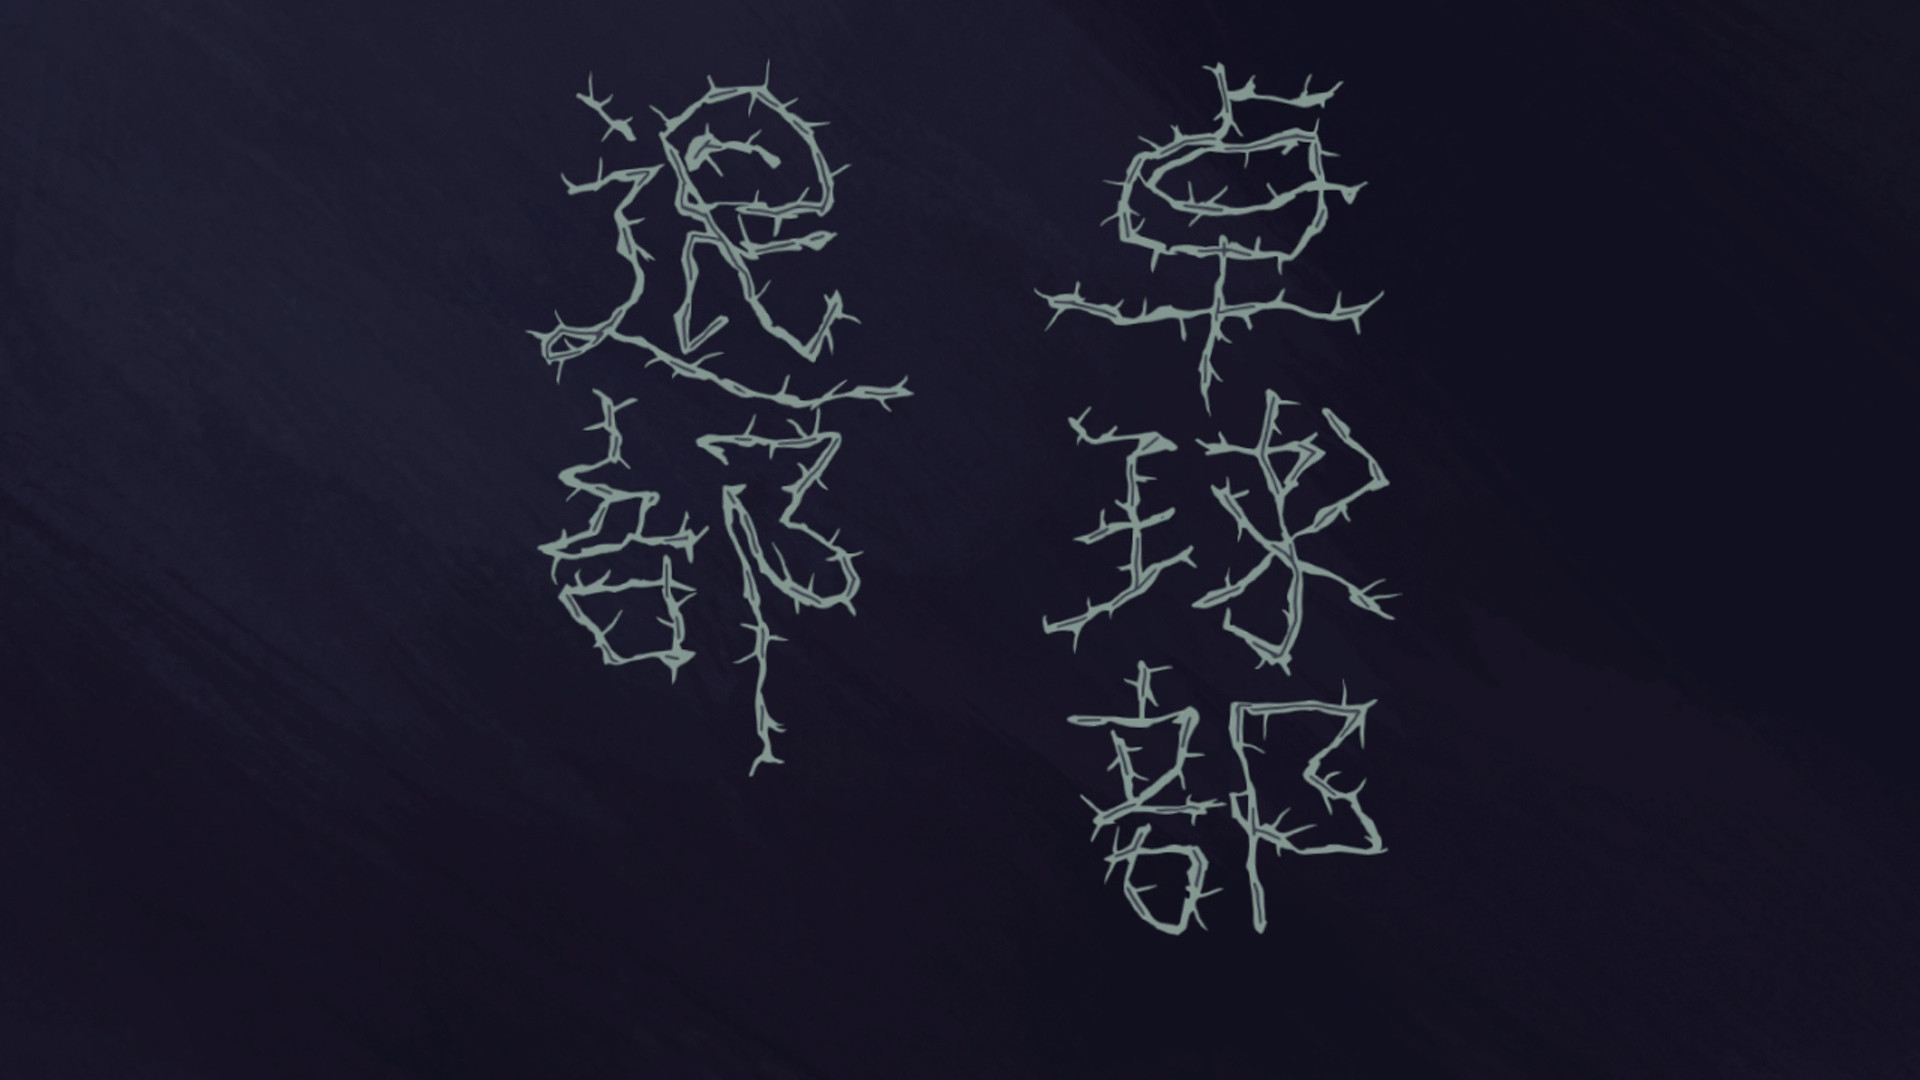 卓球部
退部